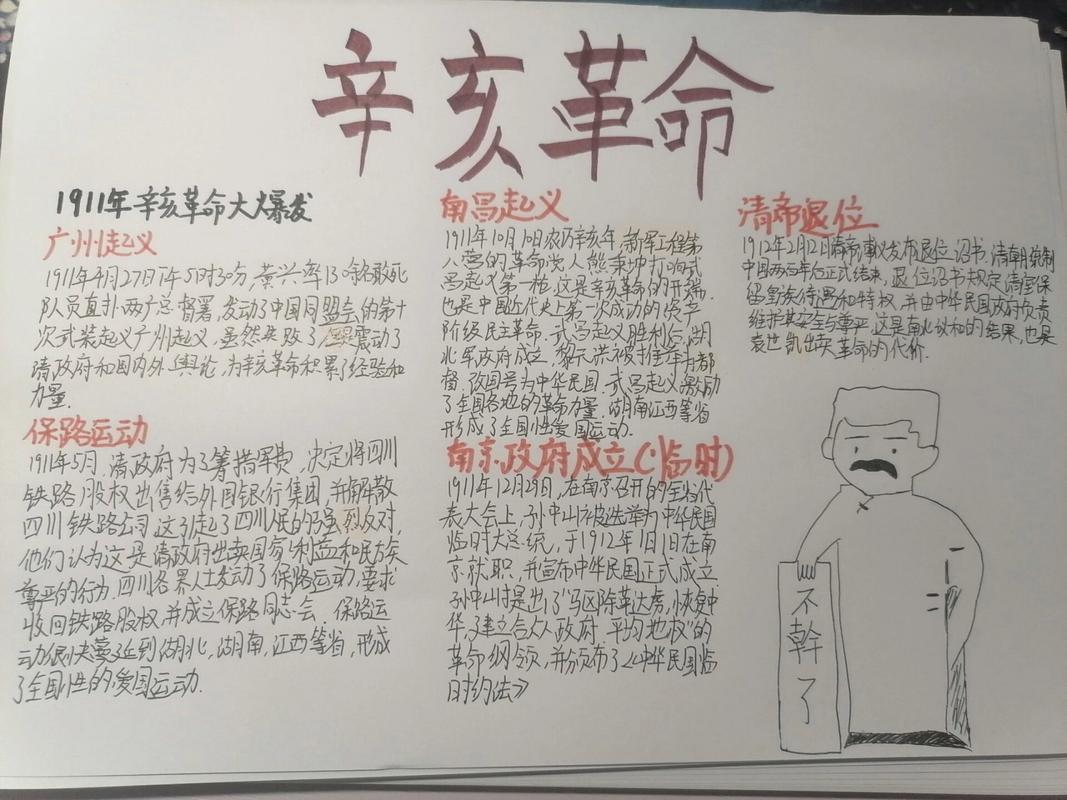 辛亥革命
1911年辛亥革命大爆发
广州起义
1911年4月27日下午5时30分,黄兴率130名敢死
队员直扑两广总督署,发动了中国同盟会的第十
次武装起义广州起义,虽然失败了但震动了
清政府和国内外舆论,为辛亥革命积累了经验和
力量.
保路运动
1911年5月,清政府为了筹措军费,决定将四川
铁路股权出售给外国银行集团,并解散
四川铁路公司,这引起了四川民的强烈反对,
他们认为这是清政府出卖国家利益和民族
尊严的行为,四川各界人士发动了保路运动,要求
收回铁路股权,并成立保路同志会,保路运
动很快蔓延到湖北,湖南,江西等省,形成
了全国性的爱国运动.
南昌起义
1911年10月10日农历辛亥年,新军工程第
八营的革命党人熊秉坤打响武
昌起义第一枪,这是辛亥革命的开端,
也是中国近代史上第一次成功的资产
阶级民主革命.武昌起义胜利后,湖
北军政府成立,黎元洪被推举为都
督,改国号为中华民国.武昌起义激励
了全国各地的革命力量,湖南江西等省
形成了全国性爱国运动.
南京政府成立(临时)
1911年12月29日,在南京召开的全省代
表大会上,孙中山被选举为中华民国
临时大总统,于1912年1月1日在南
京就职,并宣布中华民国正式成立.
孙中山时提出了"驱除鞑虏,恢复中
华,建立合众政府,平均地权"的
革命纲领,并颁布了《中华民国临
时约法》
清帝退位
1912年2月12日清帝溥仪发布退位诏书,清朝统制
中国两百年后正式结束,退位诏书规定,清室保
留皇族待遇和特权,并由中华民国政府负责
维护其安全与尊严,这是南北议和的结果,也是
袁世凯出卖革命的代价.
不幹了